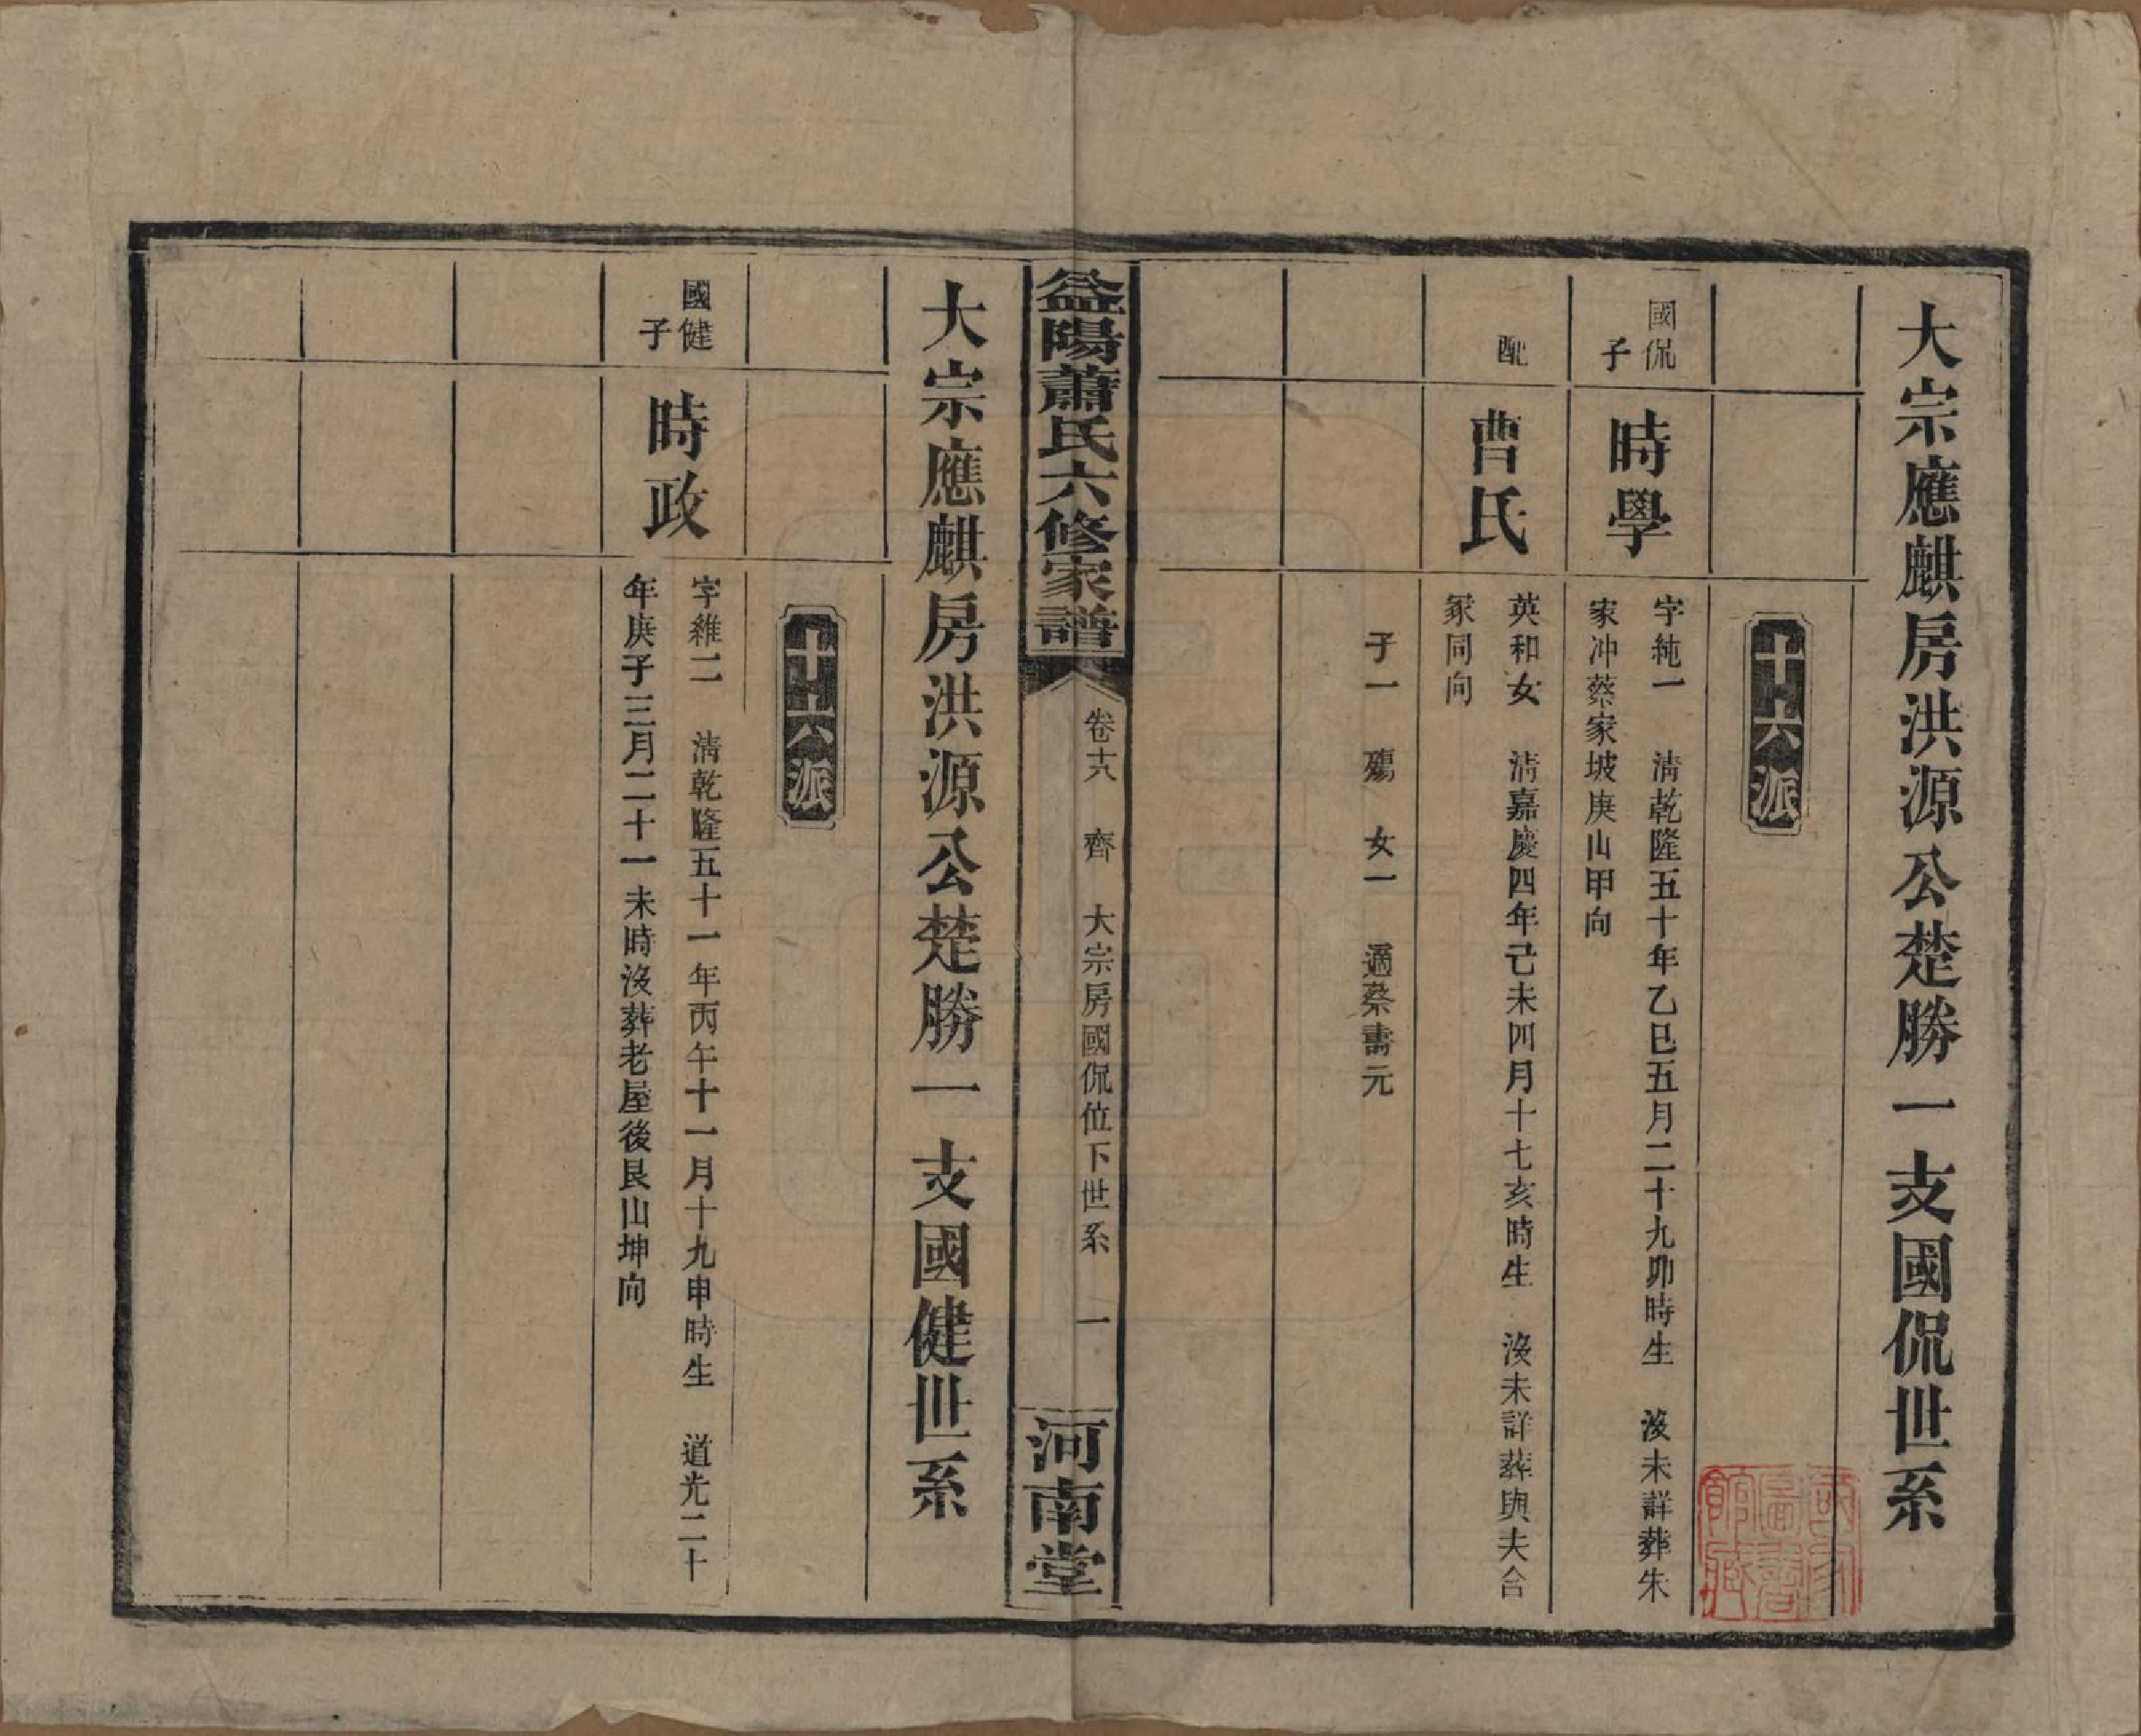 大宗應麒房洪源公楚勝一支國侃世系
十六派
國侃
子
時學
字純一　清乾隆五十年乙巳五月二十九卯時生　沒未詳葬朱
家冲蔡家坡庚山甲向
配
曹氏
英和女　清嘉慶四年己未四月十七亥時生　沒未詳葬與夫合
冢同向
子一　殤　女一　適蔡壽元
益陽蕭氏六修家譜
卷十六　齊　大宗房國侃位下世系　一
河南堂
大宗應麒房洪源公楚勝一支國健世系
十六派
國健
子
時政
字維二　清乾隆五十一年丙午十一月十九申時生　道光二十
年庚子三月二十一未時沒葬老屋後艮山坤向